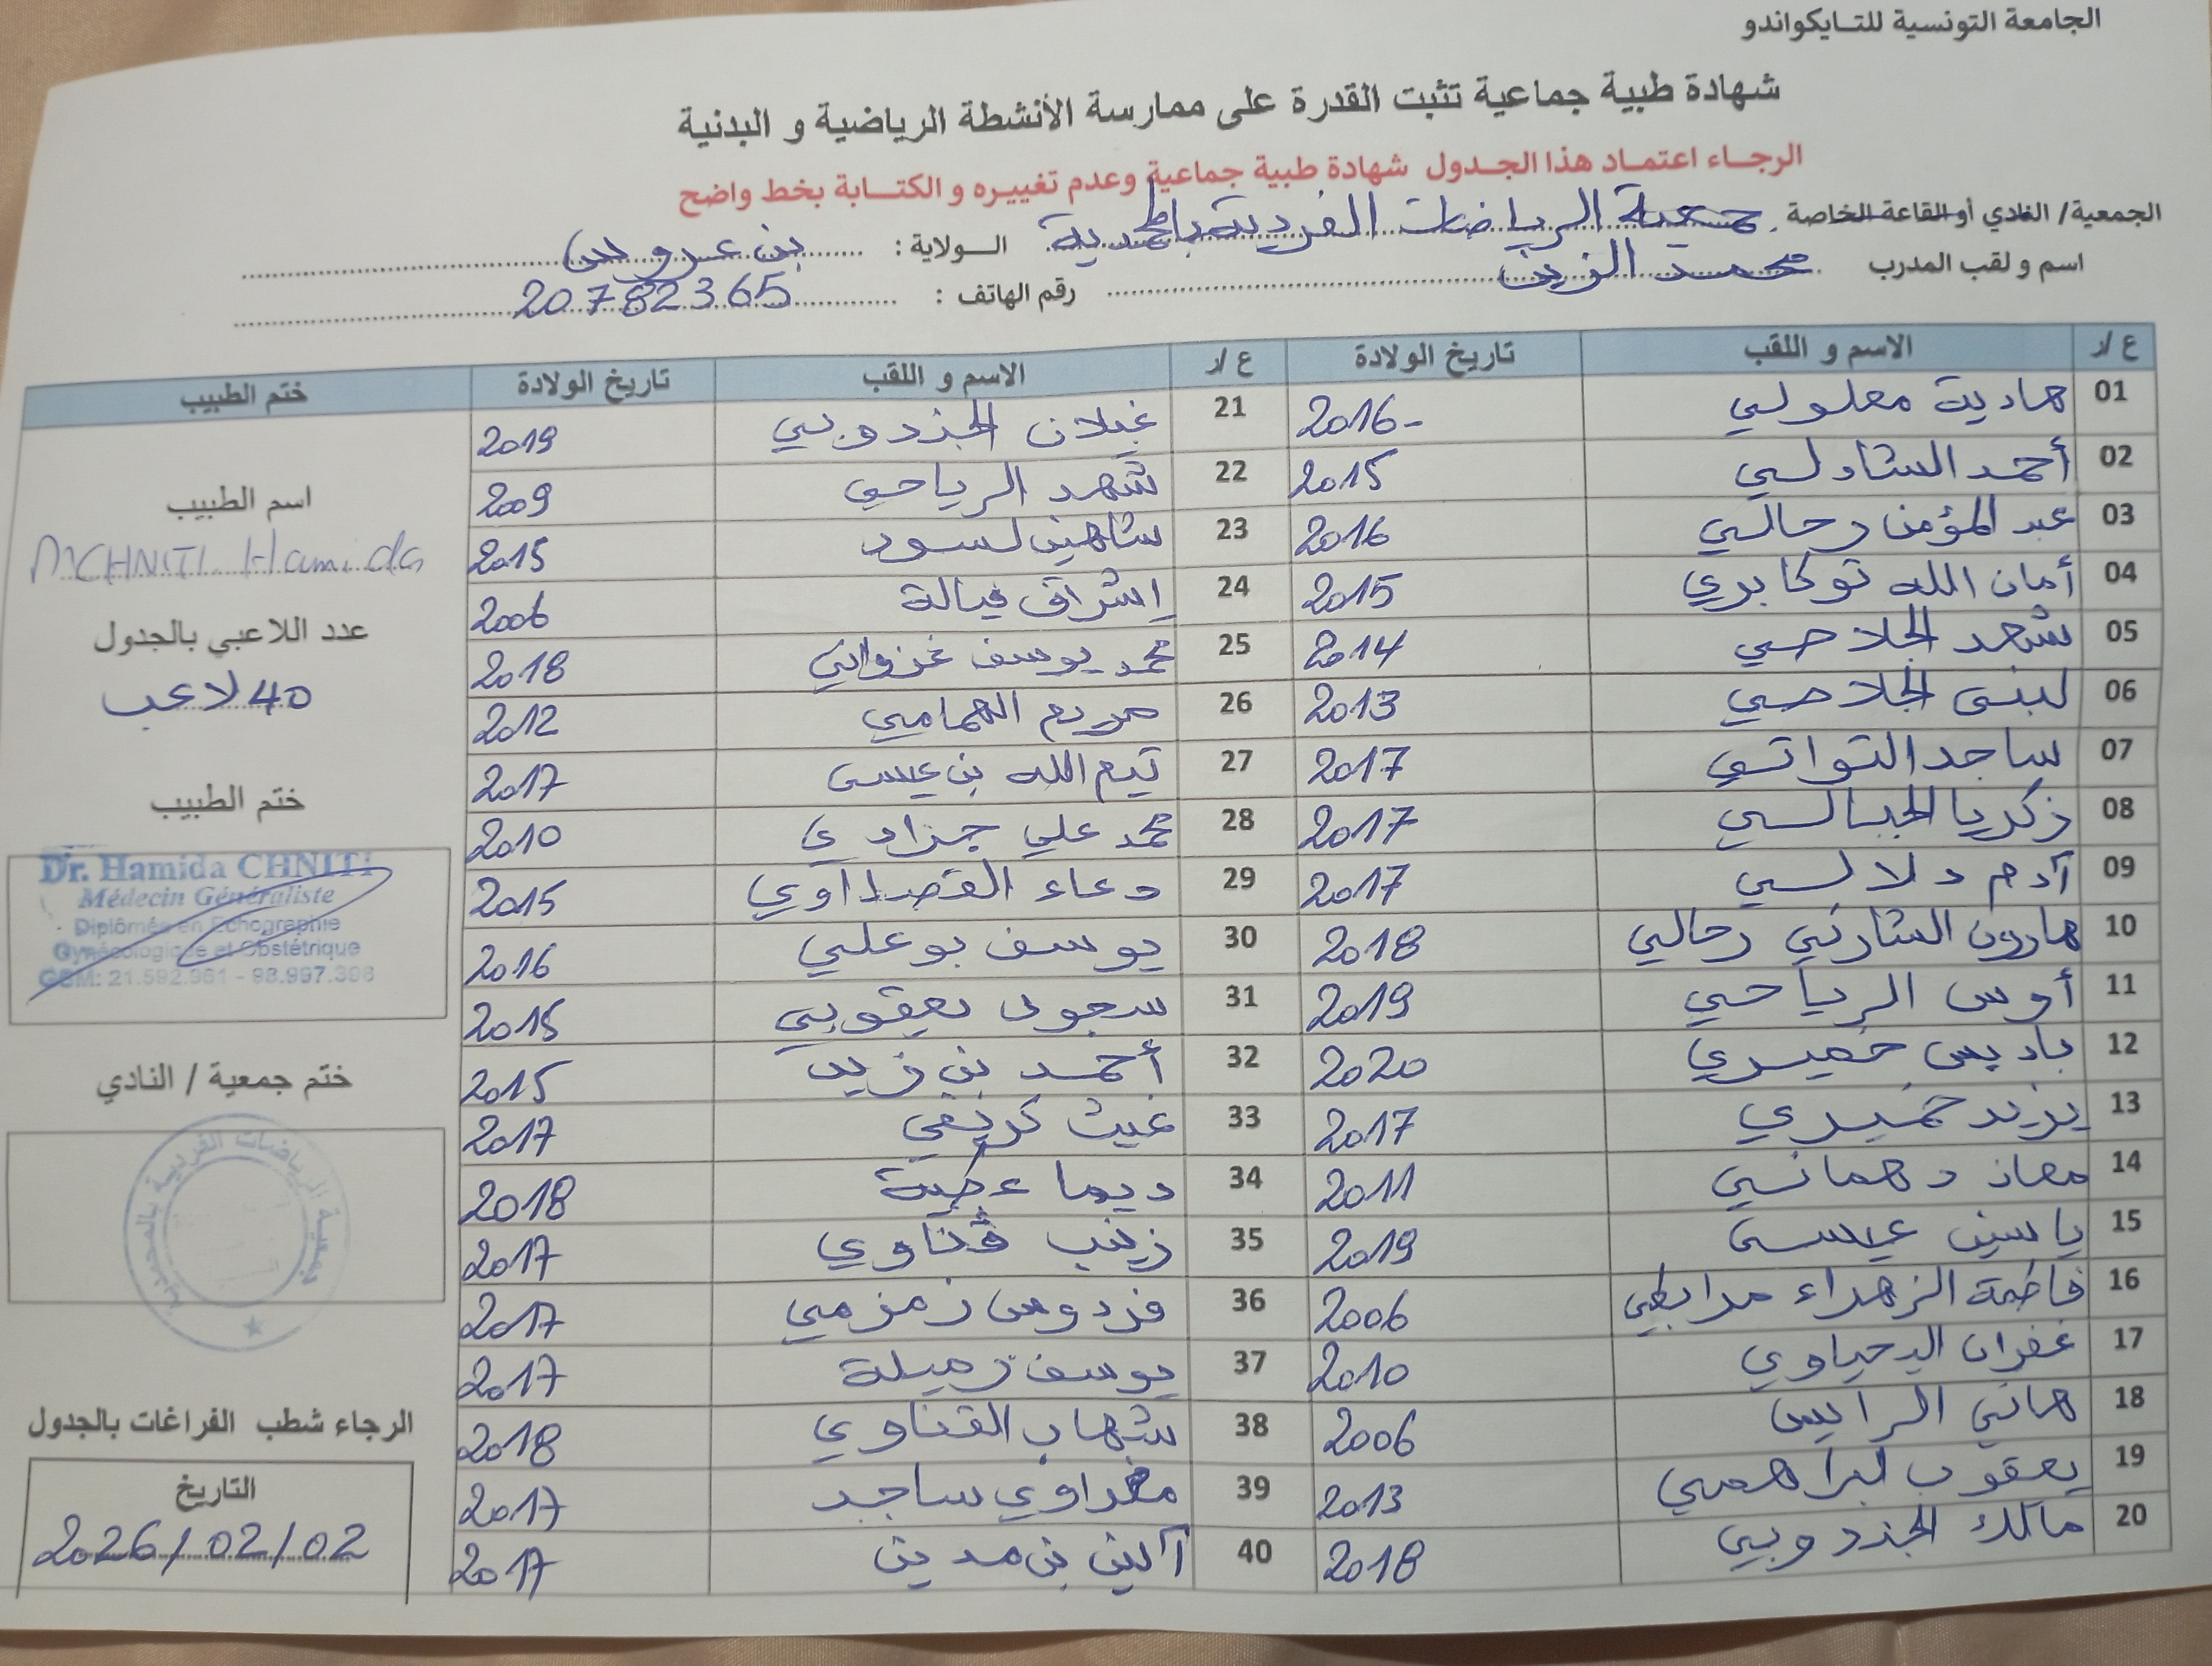 الجامعة التونسية للتايكواندو
شهادة طبية جماعية تثبت القدرة على ممارسة الأنشطة الرياضية و البدنية
الرجاء اعتماد هذا الجدول شهادة طبية جماعية وعدم تغييره و الكتابة بخط واضح
الجمعية/ النادي أو القاعة الخاصة جمعية الرياضات الفردية بالمحمدية الولاية : بن عروس
اسم و لقب المدرب محمد الزين رقم الهاتف : 20782365
ع /ر الاسم و اللقب تاريخ الولادة ع /ر الاسم و اللقب تاريخ الولادة ختم الطبيب
01 هادية معلولي 2016- 21 غيلان الجندوبي 2019
02 أحمد الشاذلي 2015 22 شهد الرياحي 2009
03 عبد المؤمن رحالي 2016 23 شاهين لسود 2015
04 أمان الله توكابري 2015 24 إشراق فيالة 2006
05 شهد الجلاصي 2014 25 محمد يوسف غزواني 2018
06 لبنى الجلاصي 2013 26 مريم الهمامي 2012
07 ساجد التواتي 2017 27 تيم الله بن عيسى 2017
08 زكريا الجبالي 2017 28 محمد علي جزادي 2010
09 آدم دلالي 2017 29 دعاء 2015
10 هارون رحالي 2018 30 يوسف بوعلي 2016
11 أوس الرياحي 2019 31 سجود يعقوبي 2015
12 باديس خميري 2020 32 أحمد بن زيد 2015
13 يزيد خميري 2017 33 غيث كريفي 2017
14 معاذ دهماني 2011 34 ديما عطية 2018
15 ياسين عيسى 2019 35 زينب ڨناوي 2017
16 فاطمة الزهراء مرابطي 2006 36 فردوس زمزمي 2017
17 غفران اليحياوي 2010 37 يوسف زميلة 2017
18 هاني الرايس 2006 38 شهاب القناوي 2018
19 يعقوب لبراهمي 2013 39 مغراوي ساجد 2017
20 مالك الجندوبي 2018 40 آلين بن مدين 2017
اسم الطبيب
Dr CHNITI Hamida
عدد اللاعبي بالجدول
40 لاعب
ختم الطبيب
Dr. Hamida CHNITI
Médecin Généraliste
Diplômés en Echographie
Gynécologique et Obstétrique
GSM: 21.592.961 - 98.997.398
ختم جمعية / النادي
جمعية الرياضات الفردية بالمحمدية
الرجاء شطب الفراغات بالجدول
التاريخ
2026/02/02